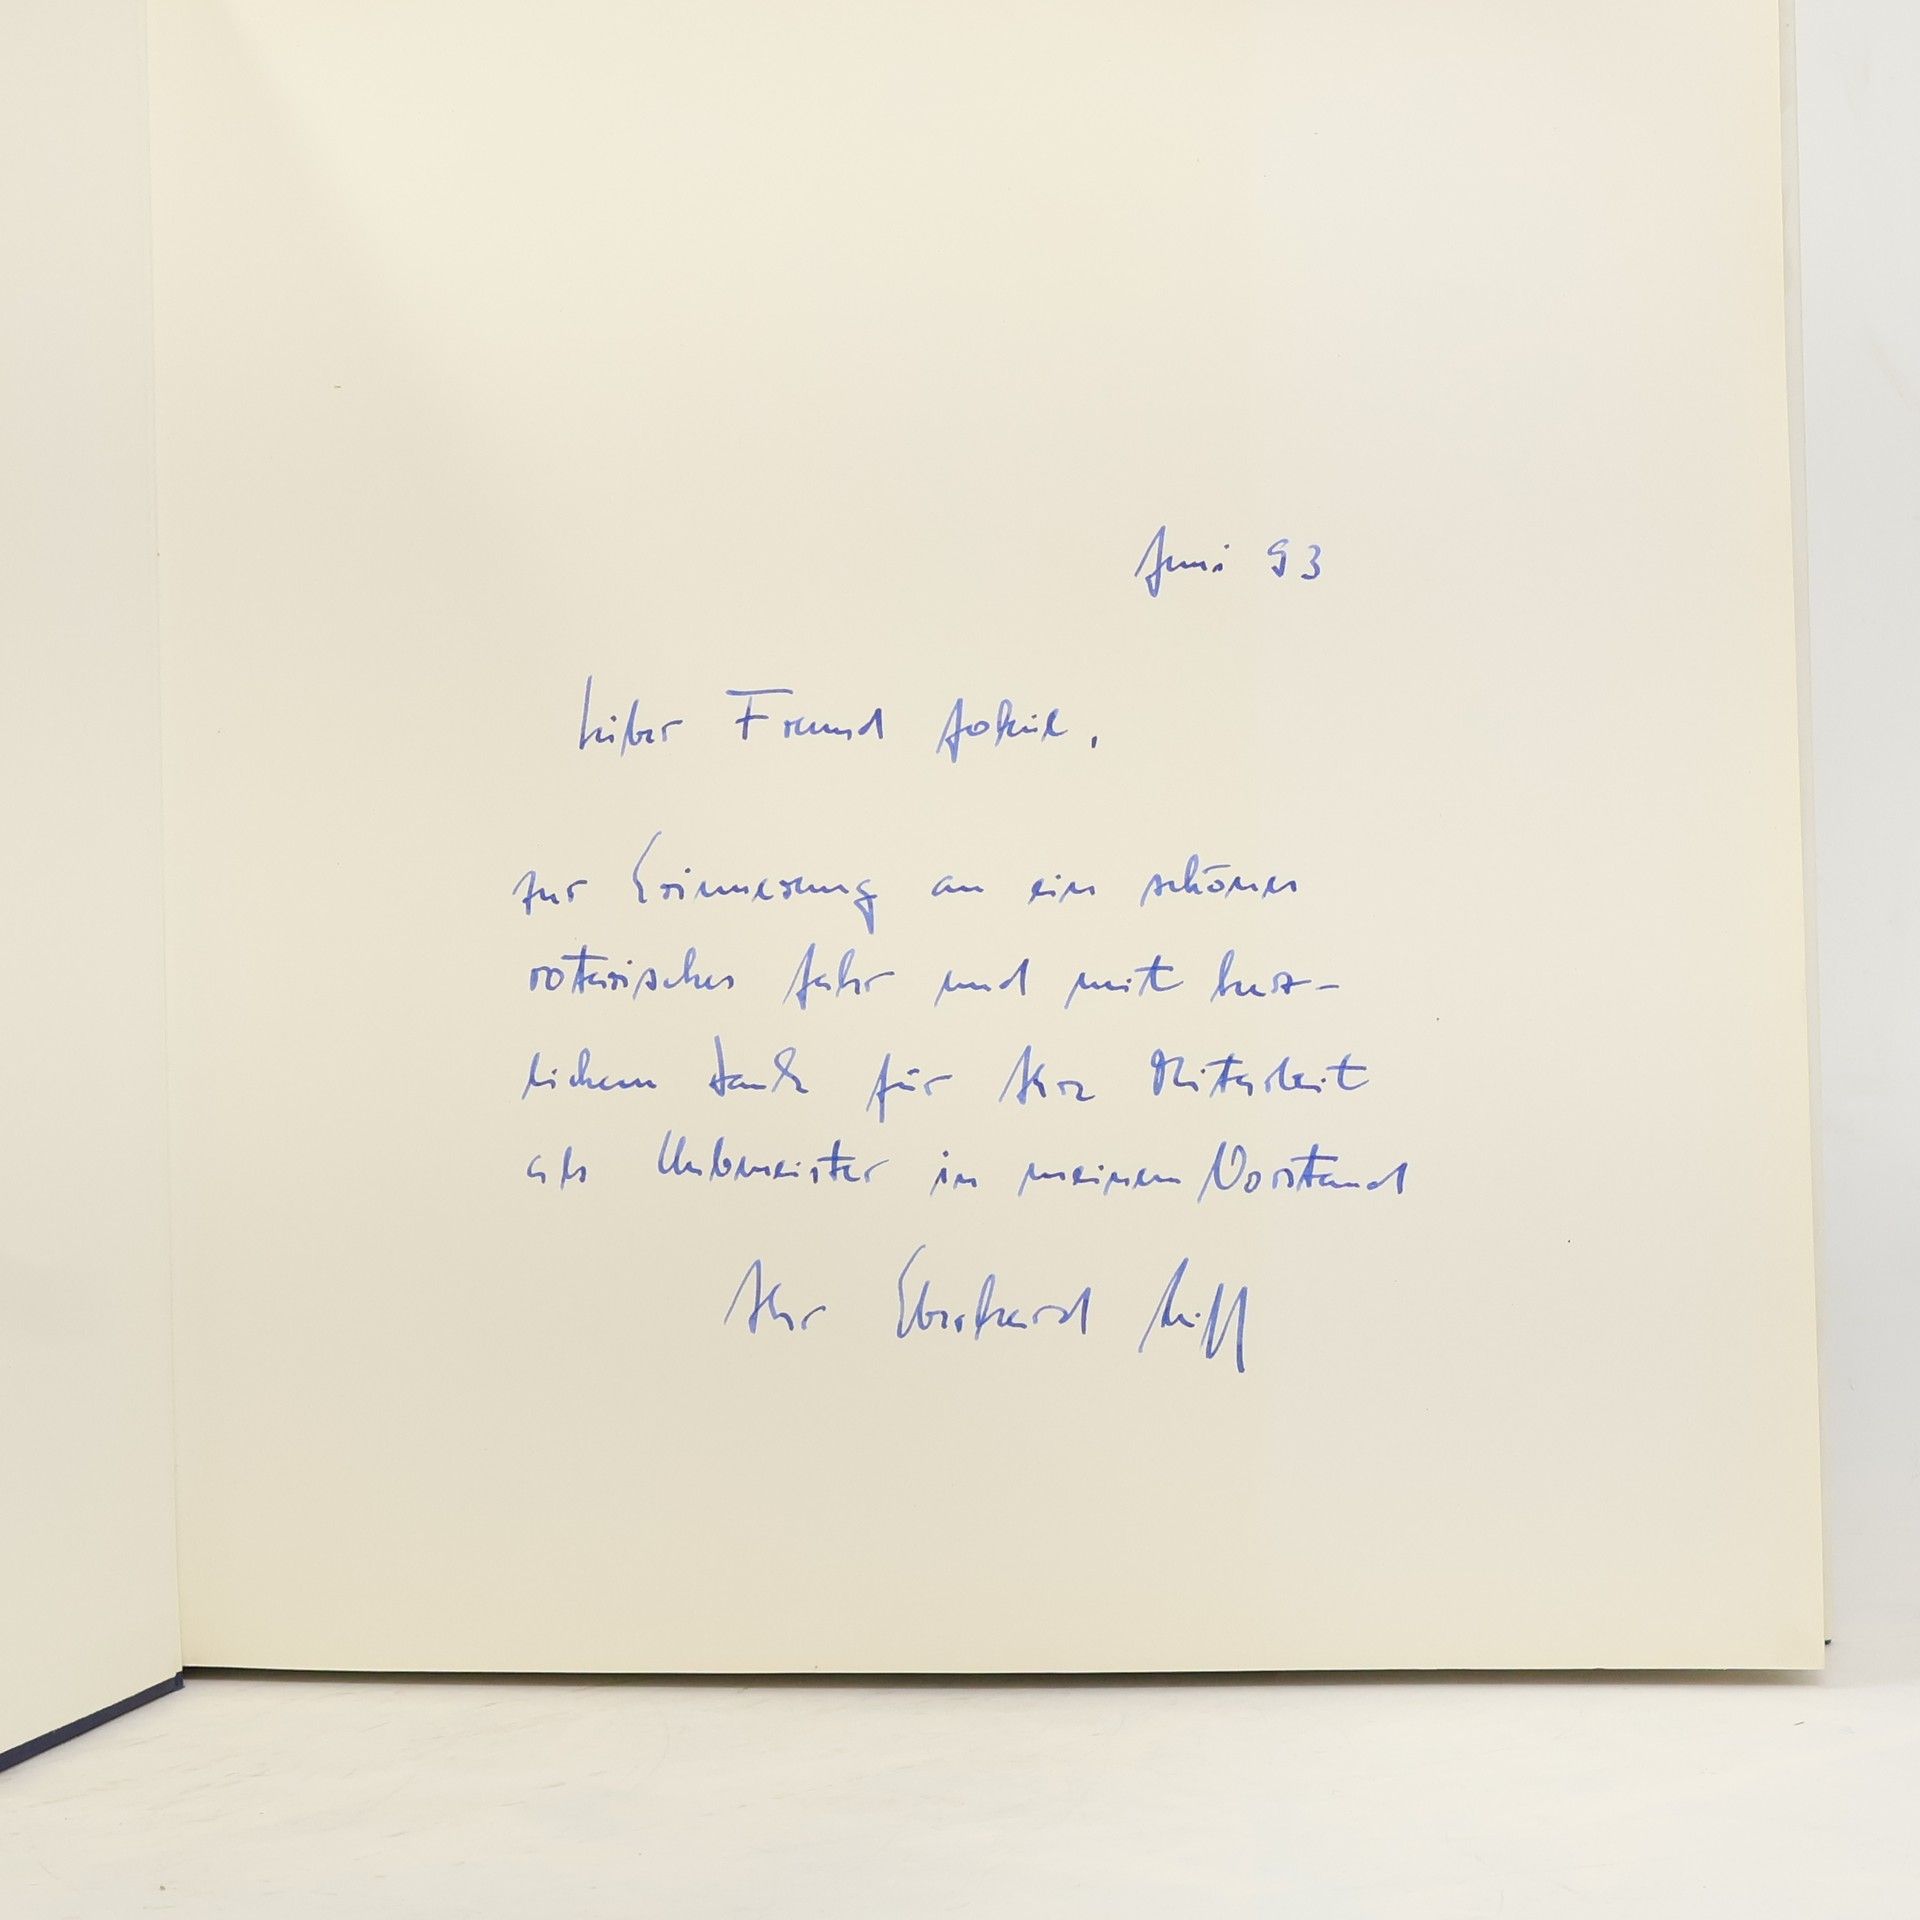 Juni 93
Lieber Freund
zur Erinnerung an ein schönes
rotarisches Jahr und mit herz-
lichem Dank für Ihre Mitarbeit
als Clubmeister in meinem Vorstand
Ihr Eberhard